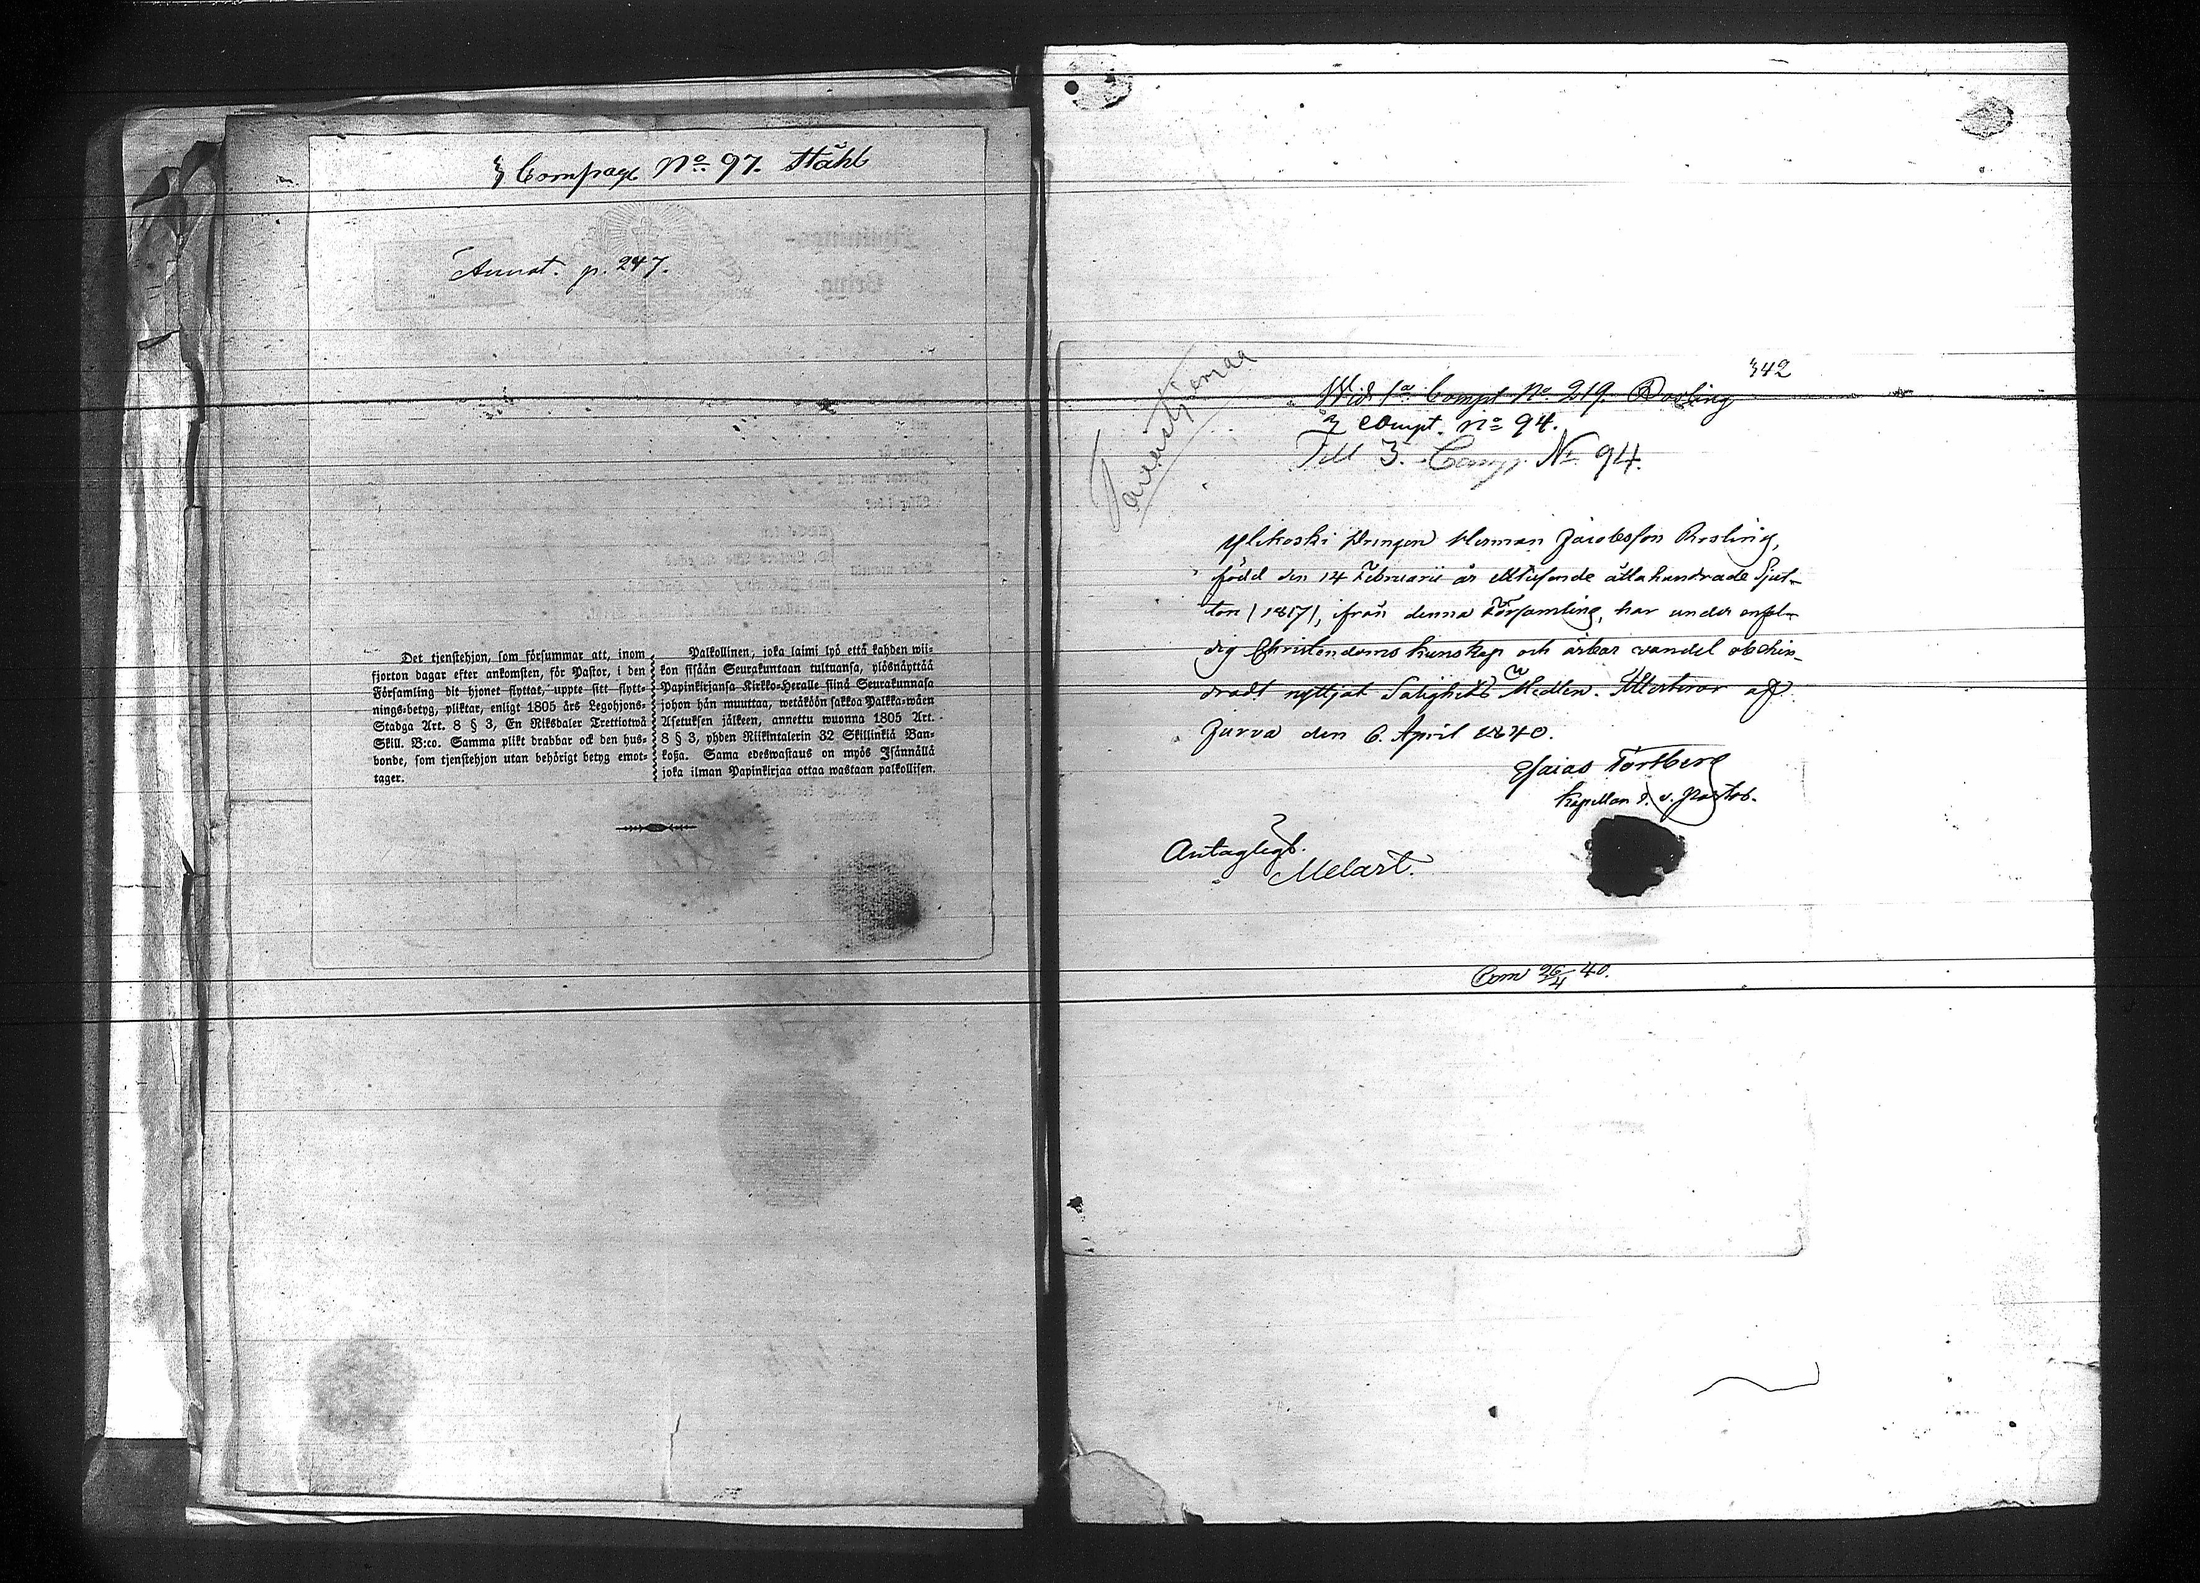 3 Compagn No 97. Ståhl
Annot. p. 247.
Det tjenstehjon, som försummar att, inom
fjorton dagar efter ankomsten, för Pastor, i den
Församling dit hjonet flyttat, uppte sitt flytt-
nings-betyg, pliktar, enligt 1805 års Legohjons-
Stadga Art. 8 § 3, En Riksdaler Trettiotwå
Skill. B:co. Samma plikt drabbar ock den hus-
bonde, som tjenstehjon utan behörigt betyg emot-
tager.
Palkollinen, joka laimi lyö että kahden wii-
kon sisään Seurakuntaan tultuansa, ylösnäyttää
Papinkirjansa Kirkko-Heralle siinä Seurakunnasa
johon hän muuttaa, wetäköön sakkoa Palkka-wäen
Asetuksen jälkeen, annettu wuonna 1805 Art.
8 § 3, yhden Riikintalerin 32 Skillinkiä Ban-
koßa. Sama edeswastaus on myös Isännällä
joka ilman Papinkirjaa ottaa wastaan palkollisen.
342
Wid 1a Compt No 219. Rosling
3 Compt. No 94.
Till 3. Comp. No 94.
Ylikoski Drengen Herman Jacobsson Rosling,
född den 14 Februarii år Ettusende åttahundrade Sjut-
ton (1817), ifrån denna Församling, har under enfal-
dig Christendoms kunskap och ärbar vandel obehin-
dradt nyttjat Salighets Medlen. Attesterar af
Jurva den 6. April 1840.
Esaias Törtberg
Kapellan o. v. Pastor.
Antagligt.
Melart.
Com 26/4 40.